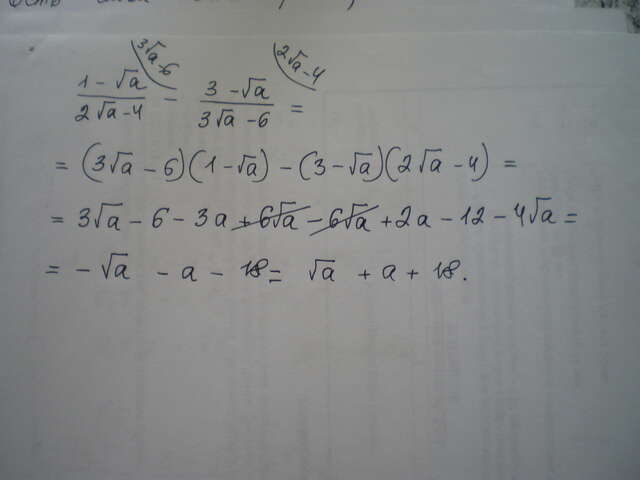 3√a-6 2√a-4
(1 - √a)/(2√a-4) - (3 - √a)/(3√a - 6) =
= (3√a - 6)(1-√a) - (3-√a)(2√a - 4) =
= 3√a - 6 - 3a + 6√a - 6√a + 2a - 12 - 4√a =
= - √a - a - 18 = √a + a + 18.